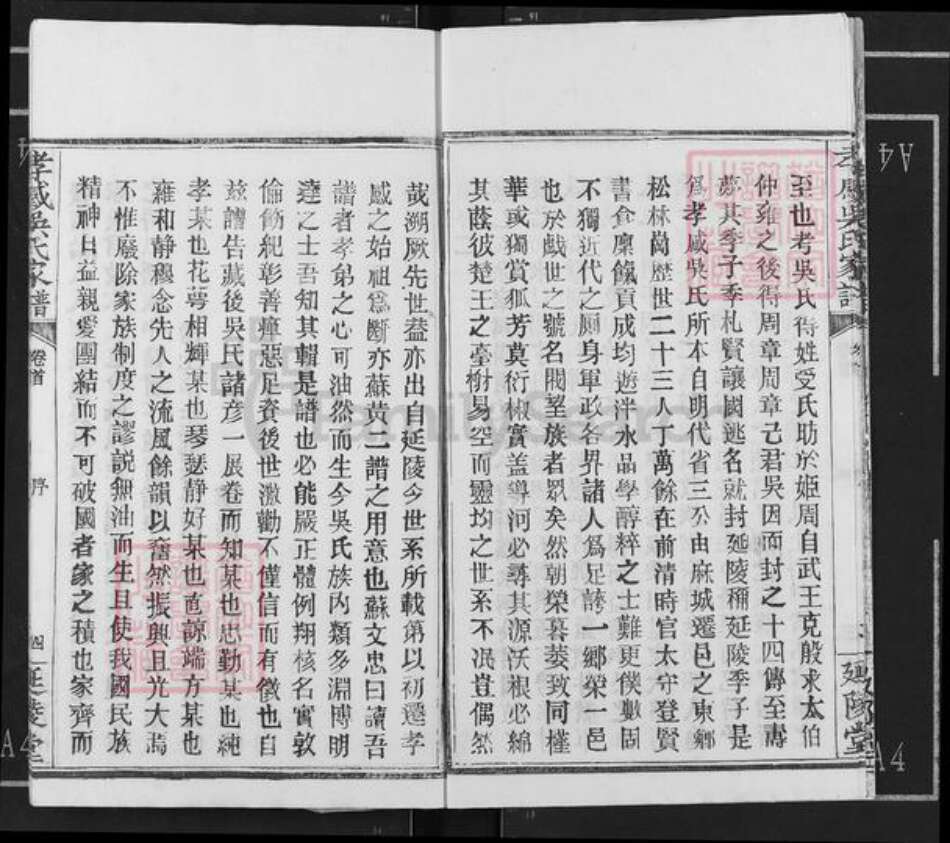 至也考吳氏得姓受氏助於姬周自武王克殷求太伯
仲雍之後得周章周章已君吳因而封之十四傳至壽
夢其季子季札賢讓國逃名就封延陵稱延陵季子是
爲孝感吳氏所本自明代省三公由麻城遷邑之東鄉
松林崗歷世二十三人丁萬餘在前清時官太守登賢
書食廩餼貢成均遊泮水品學醇粹之士難更僕數固
不獨近代之厠身軍政各界諸人爲足誇一鄉榮一邑
也於戲世之號名閥望族者眾矣然朝榮暮萎致同槿
華或獨賞孤芳莫衍椒實盖導河必尋其源沃根必綿
其蔭彼楚王之臺榭易空而靈均之世系不泯豈偶然
孝感吳氏家譜
延陵堂
哉溯厥先世葢亦出自延陵今世系所載第以初遷孝
感之始祖爲斷亦蘇黄二譜之用意也蘇文忠曰讀吾
譜者孝弟之心可油然而生今吳氏族內類多淵博明
達之士吾知其輯是譜也必能嚴正體例翔核名實敦
倫飭紀彰善癉惡足資後世激勸不僅信而有徵也自
兹譜告藏後吳氏諸彦一展卷而知某也忠勤某也純
孝某也花萼相輝某也琴瑟靜好某也直諒端方某也
雍和静穆念先人之流風餘韻以奮然振興且光大焉
不惟廢除家族制度之謬説無油而生且使我國民族
精神日益親愛團結而不可破國者家之積也家齊而
孝感吳氏家譜
卷首
序
四
延陵堂
A4
A4
A4
A4
FamilySearch